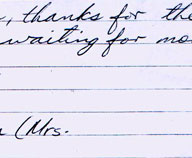 , thanks for the
waiting for mo
(Mrs.